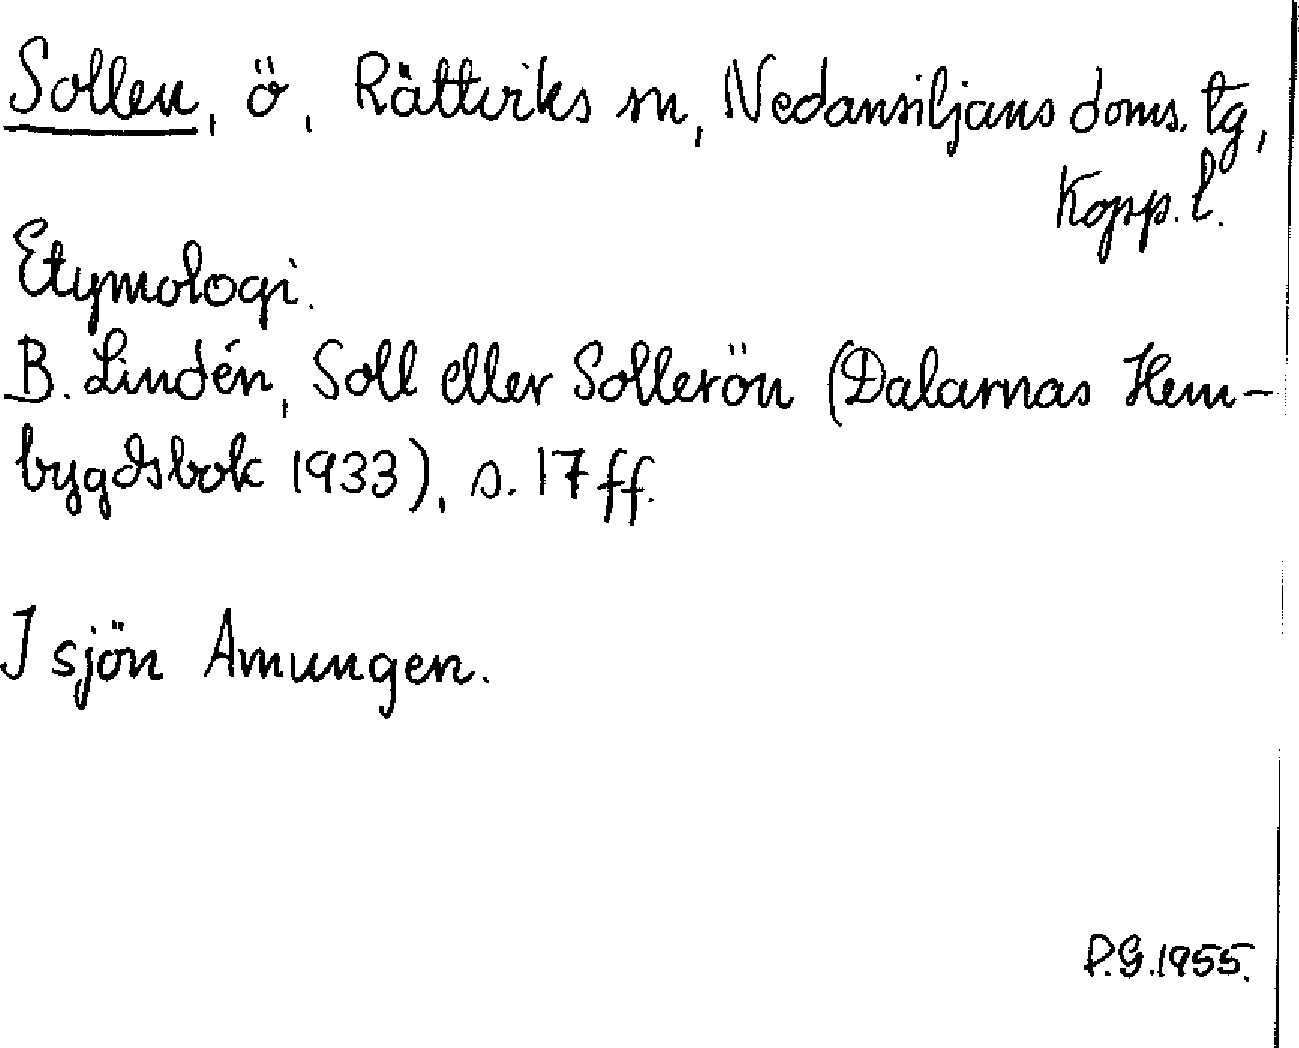 Sollen, ö, Rättviks sn, Nedansiljans doms. tg,
Kopp. l.
Etymologi.
B. Lindén, Soll eller Sollerön (Dalarnas Hem-
bygdsbok 1933), s. 17 ff.
I sjön Amungen.
P.G. 1955.